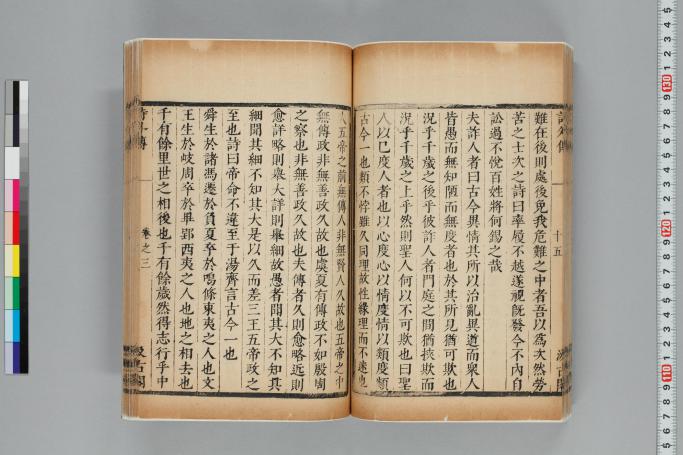 詩外傳
十五
汲古閣
難在後則處後免我危難之中者吾以為次然勞
苦之士次之詩曰率履不越遂視既發今不內自
訟過不悅百姓將何錫之哉
夫詐人者曰古今異情其所以治亂異道而衆人
皆愚而無知陋而無度者也於其所見猶可欺也
況乎千歲之後乎彼詐人者門庭之間猶挾欺而
況乎千歲之上乎然則聖人何以不可欺也曰聖
人以已度人者也以心度心以情度情以類度類
古今一也類不悖雖久同理故性緣理而不迷也
人五帝之前無傳人非無賢人久故也五帝之中
無傳政非無善政久故也虞夏有傳政不如殷周
之察也非無善政久故也夫傳者久則愈略近則
愈詳略則舉大詳則舉細故愚者聞其大不知其
細聞其細不知其大是以久而差三王五帝政之
至也詩曰帝命不違至于湯齊言古今一也
舜生於諸馮遷於負夏卒於鳴條東夷之人也文
王生於岐周卒於畢郢西夷之人也地之相去也
千有餘里世之相後也千有餘歲然得志行乎中
詩外傳
卷之三
汲古閣
1
110
120
130